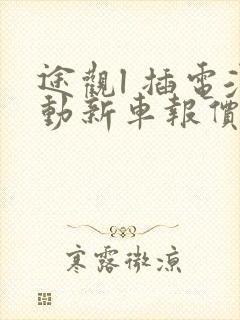 途觀l 插電
動新車報價
寒露微涼